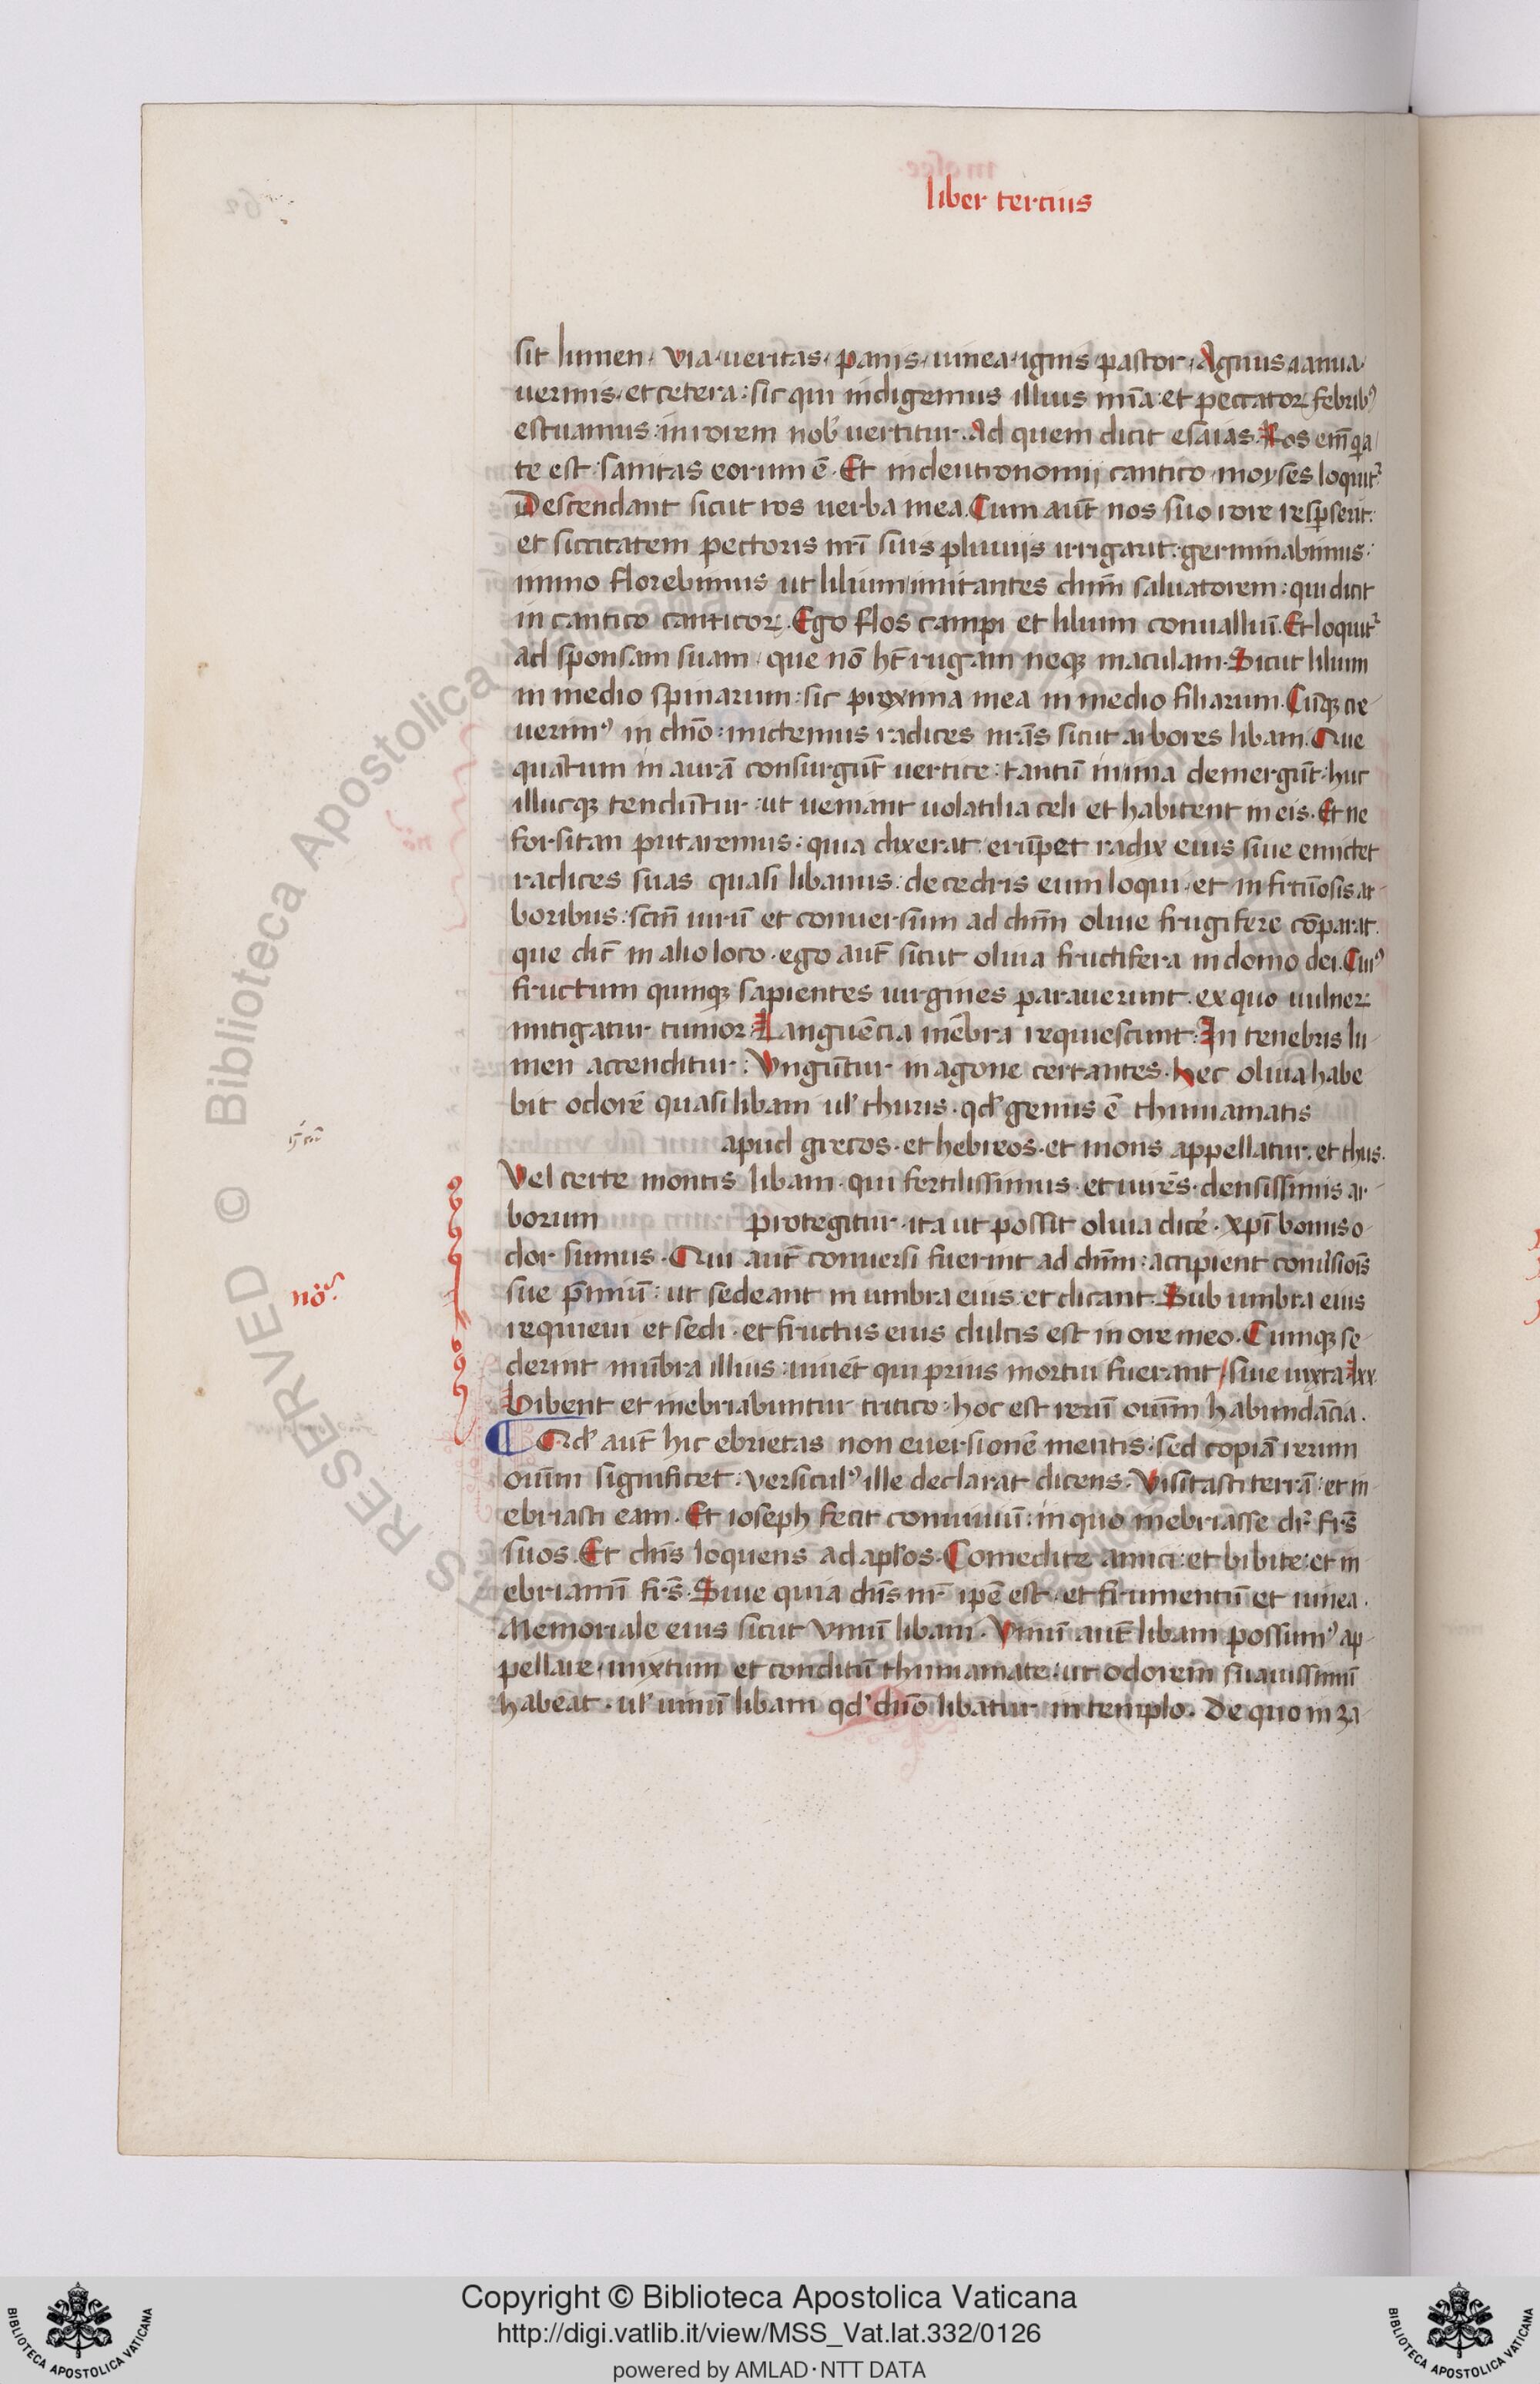 liber tercius
sit lumen · via · ueritas · panis · uinea · ignis · pastor · Agnus · ianua ·
uermis · et cetera : sic qui indigemus illius mi͞a · et peccatoꝝ febribꝰ
estuamus · in rorem nob̛ uertitur · Ad quem dicit esaias · Ros em̄ q̄ a
te est · sanitas eorum ē · Et in deutronomij cantico moyses loquit᷑
Descendant sicut ros uerba mea · Cum aut̄ nos suo rore resp̱serit :
et siccitatem pectoris nr̄i suis pluuijs irrigarit : germinabimus :
immo florebimus ut lilium imitantes dn̄m saluatorem : qui dicit
in cantico canticoꝝ · Ego flos campi et lilium conualliū · Et loquit᷑
ad sponsam suam · que nō ht̄ rugam neqꝫ maculam · Sicut lilium
in medio spinarum : sic proxima mea in medio filiarum · Cūqꝫ cre
uerimꝰ in dn̄o : mictemus radices nrā̄s sicut arbores libani · Que
quātum in aurā consurgūt uertice : tantū in ima demergūt · huc
illucqꝫ tendūtur · ut ueniant uolatilia celi et habitent in eis · Et ne
forsitan putaremus : quia dixerat · erūpet radix eius siue emictet
radices suas quasi libanus : de cedris eum loqui · et infructuosis ar
boribus : scm̄ uirū et conuersum ad dn̄m oliue frugifere cōparat ·
que dic̄ in alio loco · ego aut̄ sicut oliua fructifera in domo dei · Cuiꝰ
fructum quinqꝫ sapientes uirgines parauerunt · ex quo uulneꝝ
mitigatur tumor · Languēcia mēbra requiescunt · In tenebris lu
men accenditur : Vngūtur in agone certantes · hec oliua habe
bit odorē quasi libani ul̛ thuris · qd̛ genus ē thimiamatis
apud grecos · et hebreos · et mons appellatur · et thus ·
Vel certe montis libani · qui fertilissimus · et uirēs · densissimis ar
borum protegitur · ita ut possit oliua dicē · xp̄i bonus o
dor sumus · Qui aut̄ conuersi fuerint ad dn̄m : accipient conưsioīs
nō
sue p̄miū : ut sedeant in umbra eius · et dicant · Sub umbra eius
requieui et sedi · et fructus eius dulcis est in ore meo · Cumqꝫ se
derint in ūbra illius : uiuēt qui prius mortui fuerant / siue iuxta lxx
Vibent et inebriabuntur tritico · hoc est rerū oīum habundācia ·
Qd̛ aut̄ hic ebrietas non euersionē mentis · sed copiā rerum
oīum significet : versiculꝰ ille declarat dicens · Visitasti terrā : et in
ebriasti eam · Et ioseph fecit conuiuiū : in quo inebriasse dr̄ fr̄s
suos · Et dn̄s loquens ad apl̛os · Comedite amici : et bibite : et in
ebriamī fr̄s · Siue quia dn̄s nr̄ ip̄e est · et frumentū et uinea ·
Memoriale eius sicut vinū libani · Vinū aut̄ libani possumꝰ ap
pellare · mixtum et conditū thimiamate · ut odorem suauissimū
habeat · ul̛ uinū libani qd̛ dn̄o libatur in templo · De quo in za